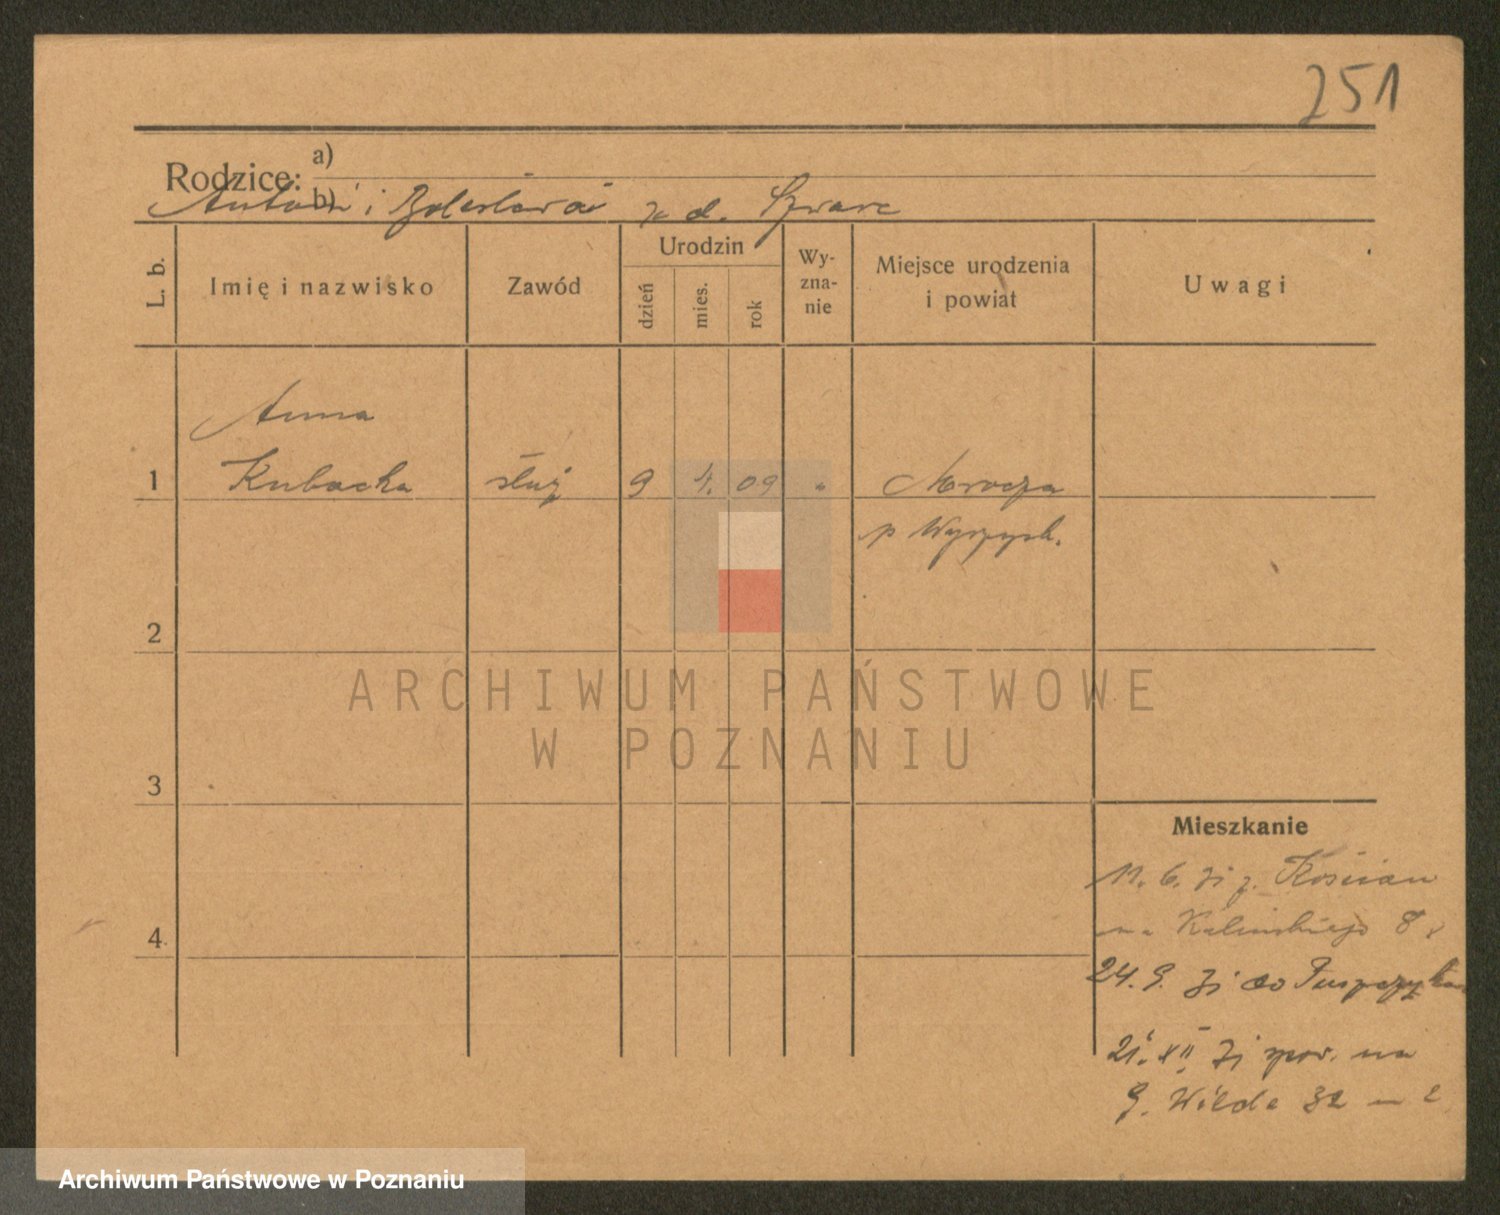 251
Rodzice: a)
b)
Antoni i Bolesława z d. Szwarc
L. b.
Imię i nazwisko
Zawód
Urodzin
dzień
mies.
rok
Wy-
zna-
nie
Miejsce urodzenia
i powiat
Uwagi
Anna
1 Kubacka służ 9 4. 09 " Mrocza
p Wyrzysk.
2
ARCHIWUM PAŃSTWOWE
W POZNANIU
3
Mieszkanie
11. 6. z. Kościan
na 8
4.
24. 9. do
21. XII na
G. Wilda 32 m 2
Archiwum Państwowe w Poznaniu